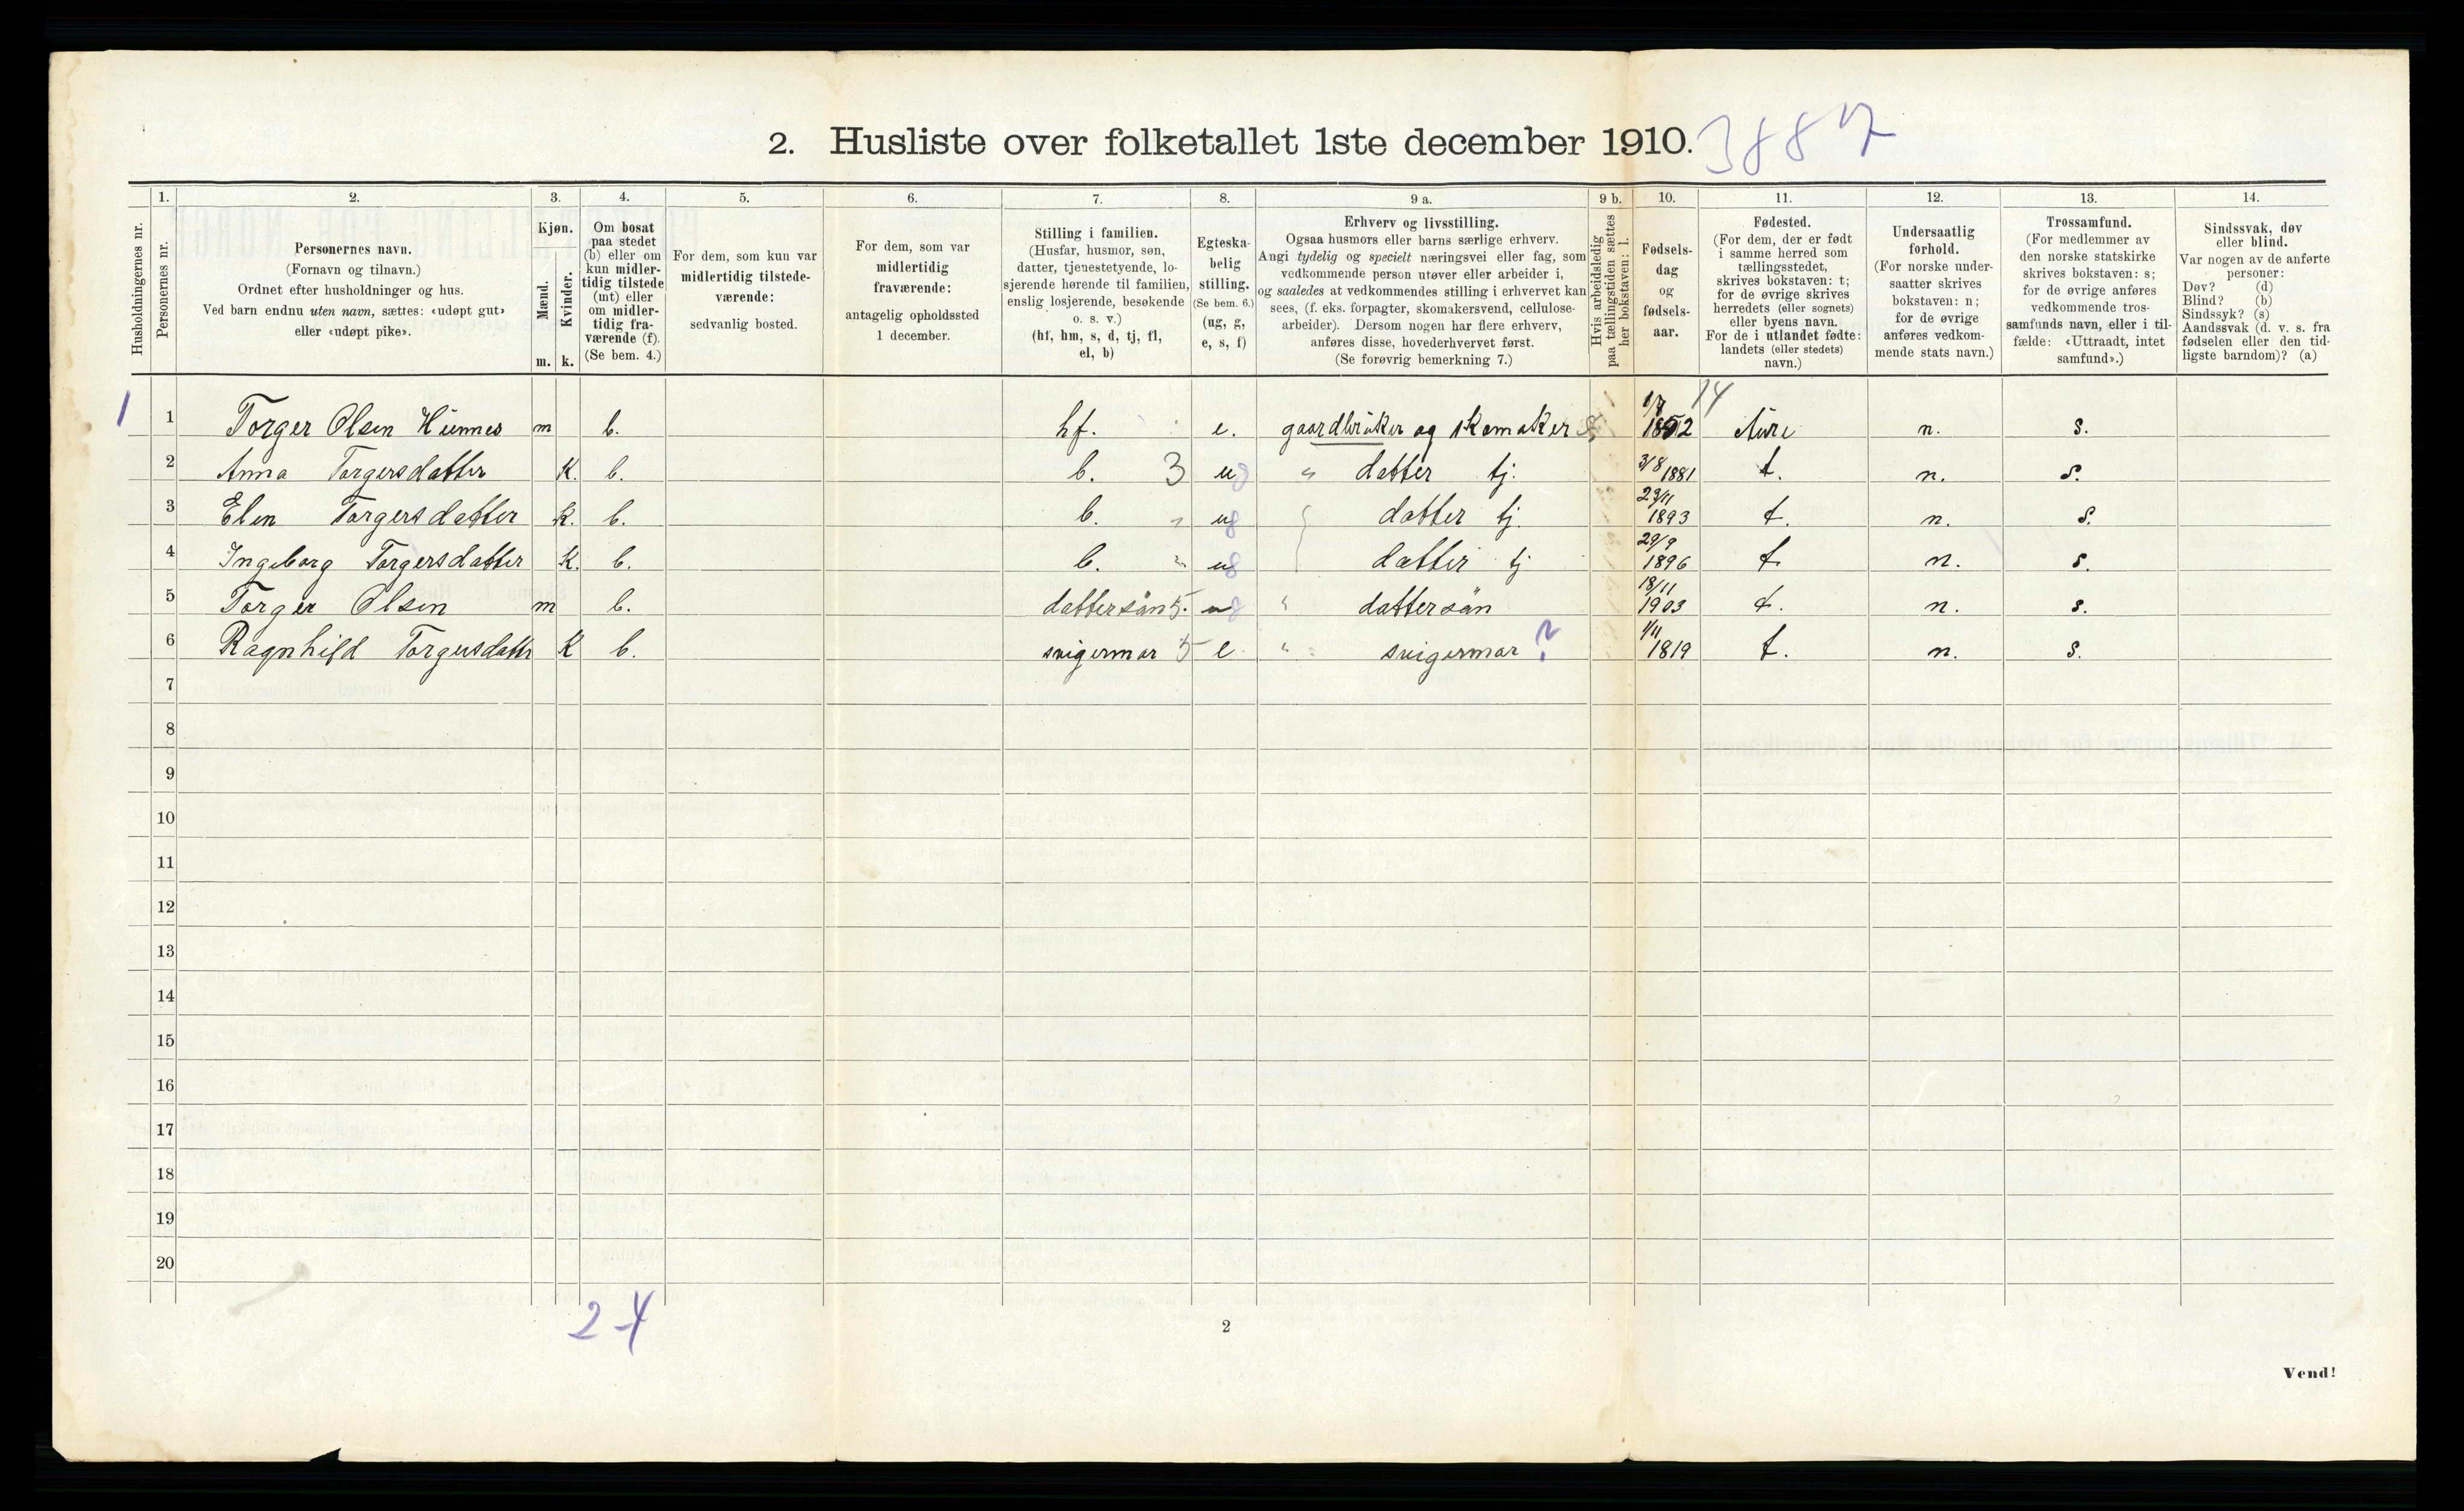 2. Husliste over folketallet 1ste december 1910. 3887
1. 2. 3. 4. 5. 6. 7. 8. 9 a. 9 b. 10. 11. 12. 13. 14.
Husholdningernes nr.
Personernes nr.
Personernes navn.
(Fornavn og tilnavn.)
Ordnet efter husholdninger og hus.
Ved barn endnu uten navn, sættes: «udøpt gut»
eller «udøpt pike».
Kjøn.
Mænd.
Kvinder.
m. k.
Om bosat
paa stedet
(b) eller om
kun midler-
tidig tilstede
(mt) eller
om midler-
tidig fra-
værende (f).
(Se bem. 4.)
For dem, som kun var
midlertidig tilstede-
værende:
sedvanlig bosted.
For dem, som var
midlertidig
fraværende:
antagelig opholdssted
1 december.
Stilling i familien.
(Husfar, husmor, søn,
datter, tjenestetyende, lo-
sjerende hørende til familien,
enslig losjerende, besøkende
o. s. v.)
(hf, hm, s, d, tj, fl,
el, b)
Egteska-
belig
stilling.
(Se bem. 6.)
(ug, g,
e, s, f)
Erhverv og livsstilling.
Ogsaa husmors eller barns særlige erhverv.
Angi tydelig og specielt næringsvei eller fag, som
vedkommende person utøver eller arbeider i,
og saaledes at vedkommendes stilling i erhvervet kan
sees, (f. eks. forpagter, skomakersvend, cellulose-
arbeider). Dersom nogen har flere erhverv,
anføres disse, hovederhvervet først.
(Se forøvrig bemerkning 7.)
Hvis arbeidsledig
paa tællingstiden sættes
her bokstaven: l.
Fødsels-
dag
og
fødsels-
aar.
Fødested.
(For dem, der er født
i samme herred som
tællingsstedet,
skrives bokstaven: t;
for de øvrige skrives
herredets (eller sognets)
eller byens navn.
For de i utlandet fødte:
landets (eller stedets)
navn.)
Undersaatlig
forhold.
(For norske under-
saatter skrives
bokstaven: n;
for de øvrige
anføres vedkom-
mende stats navn.)
Trossamfund.
(For medlemmer av
den norske statskirke
skrives bokstaven: s;
for de øvrige anføres
vedkommende tros-
samfunds navn, eller i til-
fælde: «Uttraadt, intet
samfund».)
Sindssvak, døv
eller blind.
Var nogen av de anførte
personer:
Døv? (d)
Blind? (b)
Sindssyk? (s)
Aandssvak (d. v. s. fra
fødselen eller den tid-
ligste barndom)? (a)
1 1 Torger Olsen Hinnes m b. hf. e. gaardbruker og skomaker 1852 14 Aure n. s.
2 Anna Torgersdatter K. b. b. 3 ug " datter tj. 3/8 1881 t. n. s.
3 Elen Torgersdatter K. b. b. " ug datter tj. 23/11 1893 t. n. s.
4 Ingeborg Torgersdatter K. b. b. " ug datter tj 29/9 1896 t. n. s.
5 Torger Olsen m b. dattersön 5. ug " dattersön 18/11 1903 t. n. s.
6 Ragnhild Torgersdattr K b. svigermor 5 e " svigermor ? 1/11 1819 t. n. s.
7
8
9
10
11
12
13
14
15
16
17
18
19
20
2-4
2
Vend!